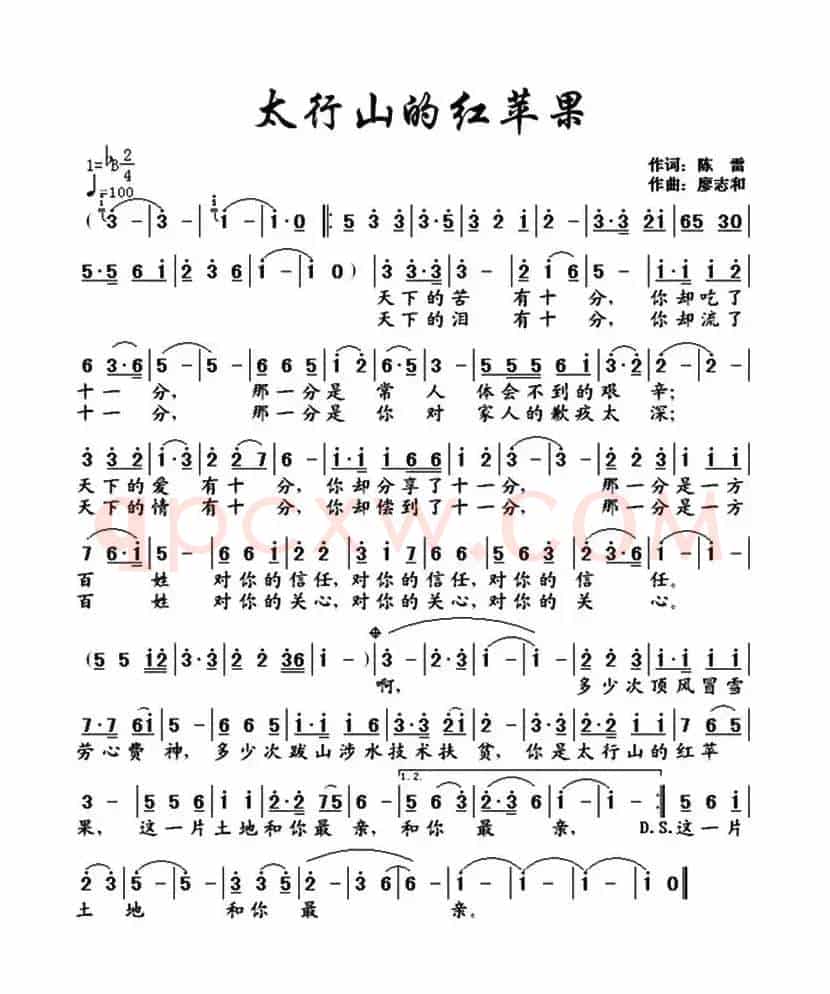 太行山的红苹果
1=♭B 2/4
♩=100
作词:陈 雷
作曲:廖志和
天下的苦 有十分, 你却吃了
天下的泪 有十分, 你却流了
十一分, 那一分是 常 人 体会不到的艰 辛;
十一分, 那一分是 你 对 家人的歉疚太 深;
天下的爱 有十分, 你却分享了十一分, 那一分是一方
天下的情 有十分, 你却偿到了十一分, 那一分是一方
百 姓 对你的信任,对你的信任,对你的 信 任。
百 姓 对你的关心,对你的关心,对你的 关 心。
啊, 多少次顶风冒雪
劳心费 神, 多少次跋山涉水技术扶 贫, 你是太行山的红苹
1.2.
果, 这一片土地和你最 亲, 和你 最 亲, D.S.这一片
土 地 和你 最 亲。
qpcxw.COM